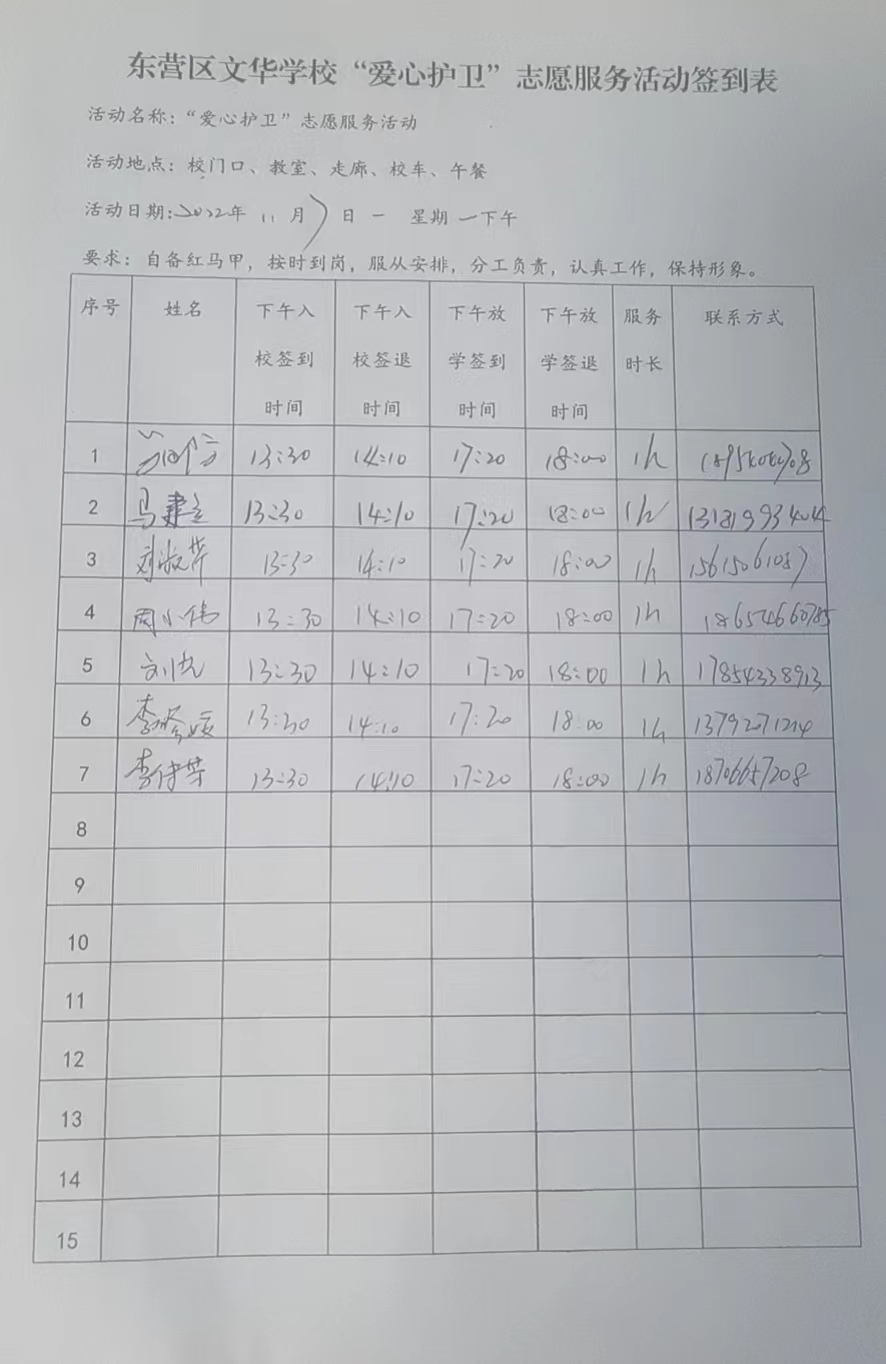 东营区文华学校“爱心护卫”志愿服务活动签到表
活动名称：“爱心护卫”志愿服务活动
活动地点：校门口、教室、走廊、校车、午餐
活动日期：2022年 11 月 7 日 一 星期 一下午
要求：自备红马甲，按时到岗，服从安排，分工负责，认真工作，保持形象。
序号 姓名 下午入校签到时间 下午入校签退时间 下午放学签到时间 下午放学签退时间 服务时长 联系方式
1 13:30 14:10 17:20 18:00 1h
2 马建立 13:30 14:10 17:20 18:00 1h 13181993404
3 刘淑芹 13:30 14:10 17:20 18:00 1h 15615061087
4 周小伟 13:30 14:10 17:20 18:00 1h 18654660785
5 13:30 14:10 17:20 18:00 1h 17854338913
6 13:30 14:10 17:20 18:00 1h 13792071214
7 13:30 14:10 17:20 18:00 1h 18706657208
8
9
10
11
12
13
14
15